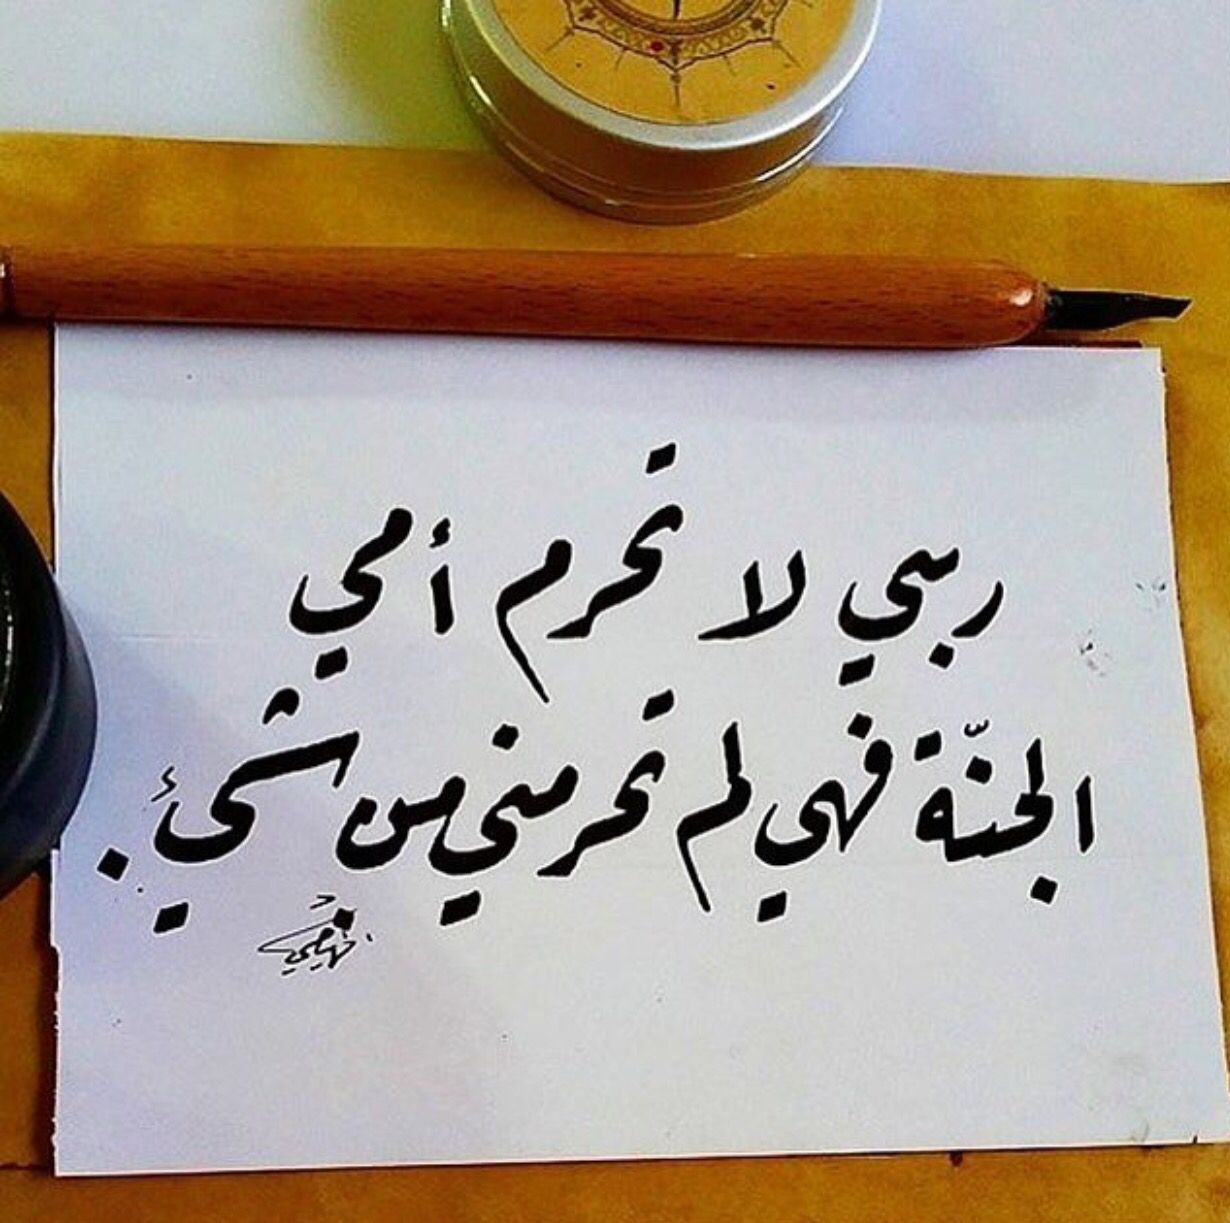 ربي لا تحرم أمي
الجنّة فهي لم تحرمني من شيئ.